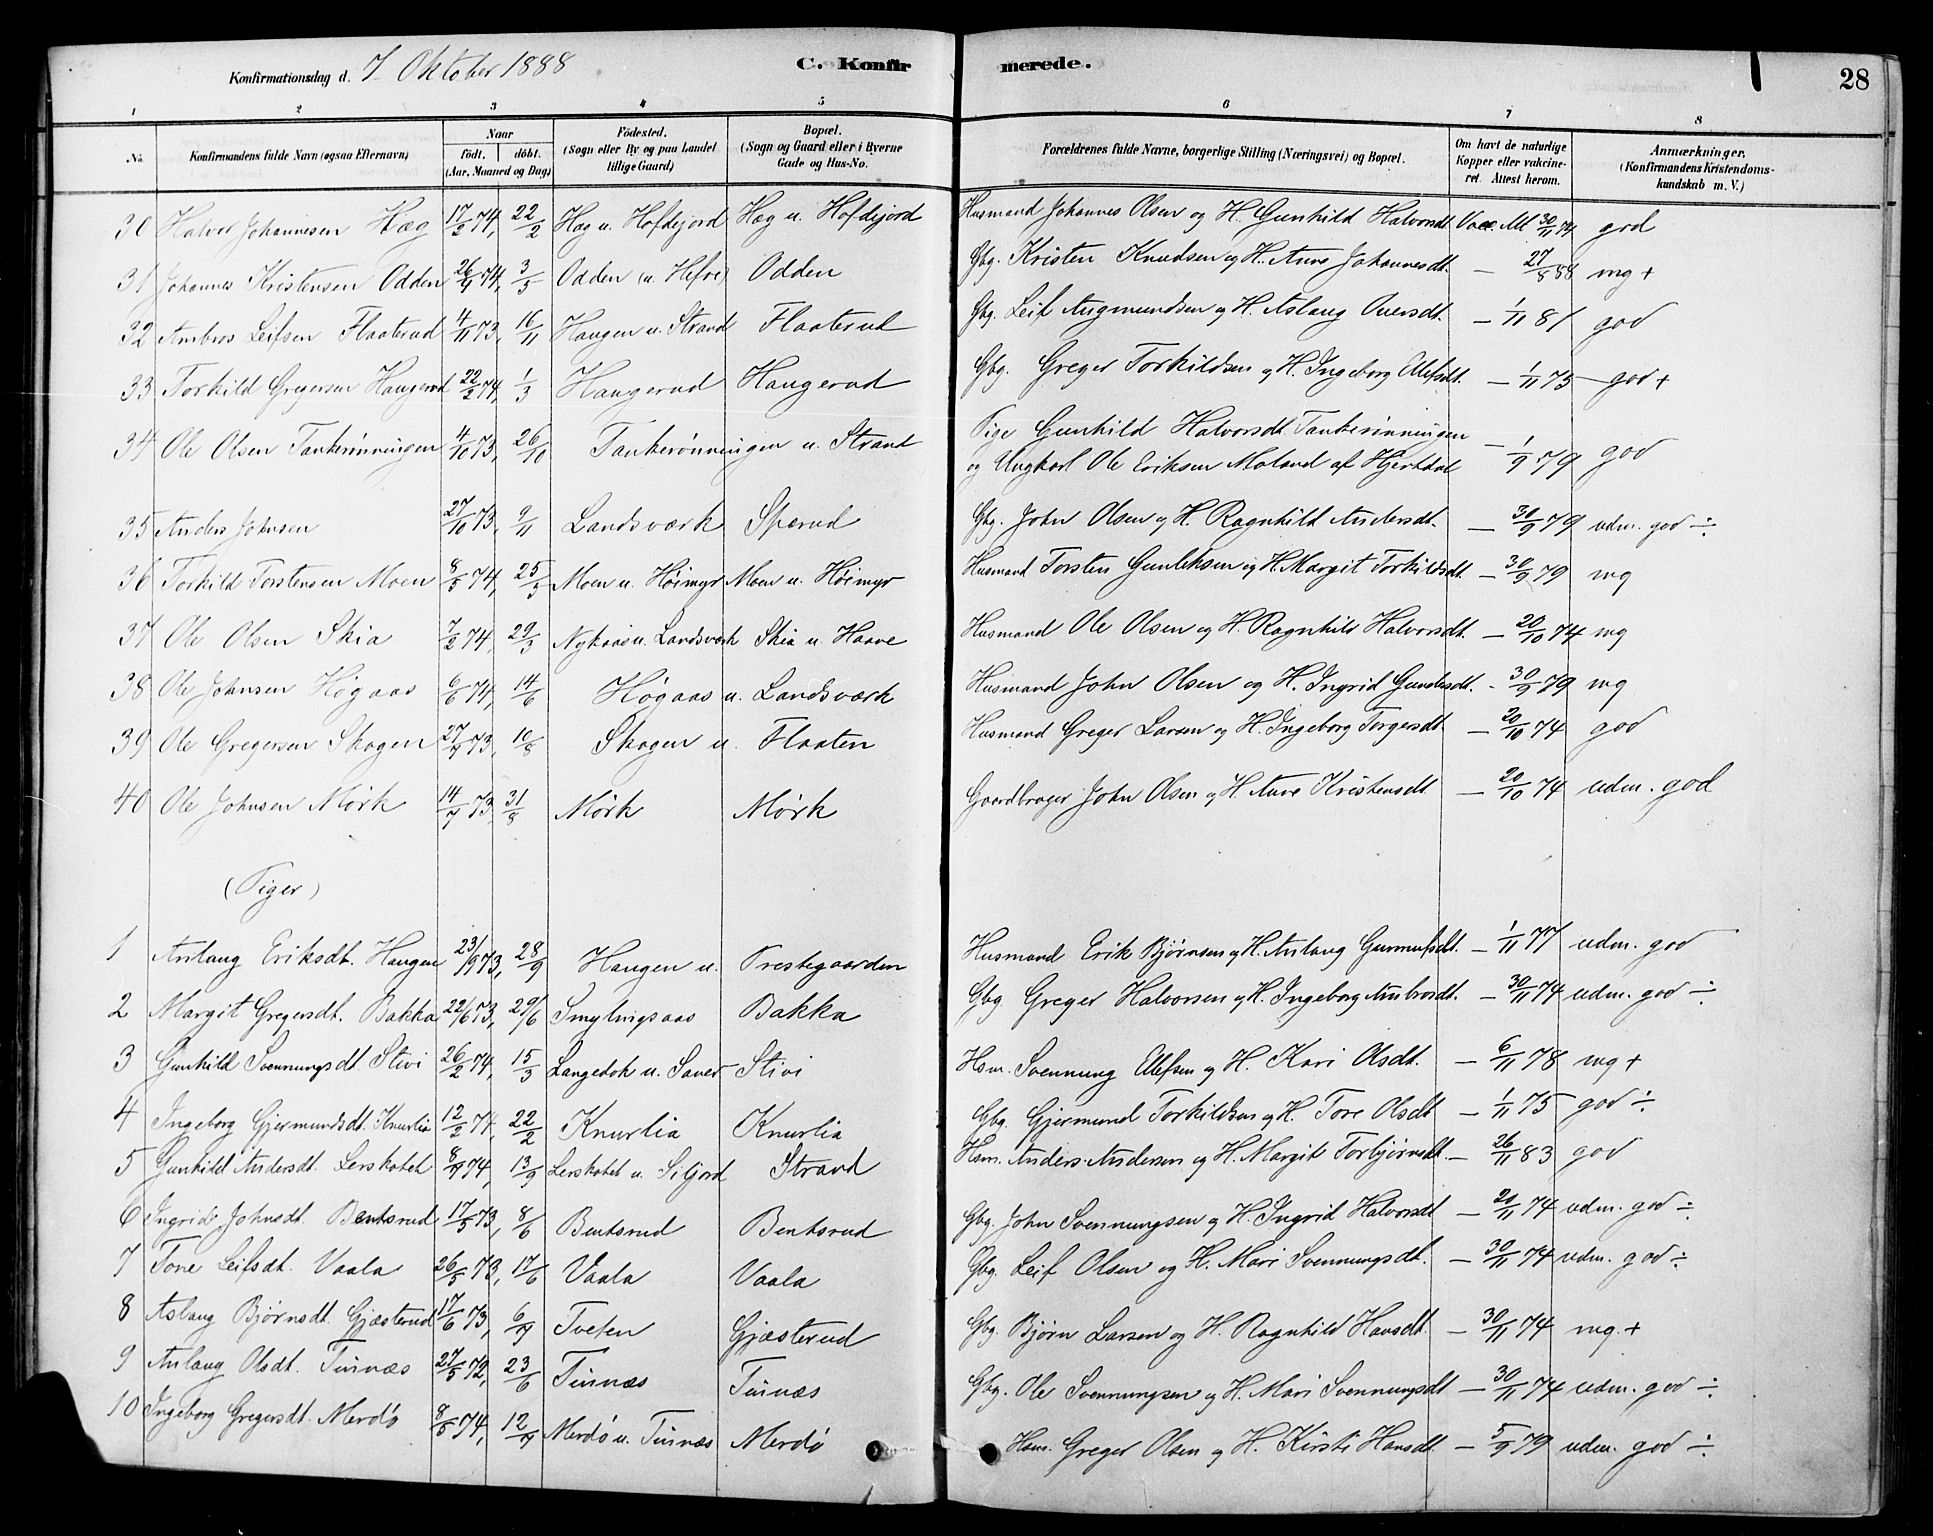 Konfirmationsdag d. 7 Oktober 1888 C. Konfir merede. 28
1 2 3 4 5 6 7 8
No. Konfirmandens fulde Navn (ogsaa Efternavn) Naar født. døbt. (Aar, Maaned og Dag) Fødested. (Sogn eller By og paa Landet tillige Gaard) Bopæl. (Sogn og Gaard eller i Byerne Gade og Hus-No. Forældrenes fulde Navne, borgerlige Stilling (Næringsvei) og Bopæl. Om havt de naturlige Kopper eller vakcineret. Attest herom. Anmærkninger. (Konfirmandens Kristendomskundskab m. V.)
30 Halvor Johannesen Hæg 17/2 74, 22/2 Hæg u. Hofdejord Hæg u. Hofdejord Husmand Johannes Olsen og H. Gunhild Halvorsdt. Vacc. Att 30/11 74 god
31 Johannes Kristensen Odden 26/4 74, 3/5 Odden (u. Hefre) Odden Gbg. Kristen Knudsen og H. Anne Johannesdt. — 27/8 88 mg +
32 Ambros Leifsen Flaaterud 4/11 73, 16/11 Haugen u. Strand Flaaterud Gbg. Leif Augmundsen og H. Aslaug Oversdt. — 1/11 81 god
33 Torkild Gregersen Haugerud 22/2 74, 1/3 Haugerud Haugerud Gbg. Greger Torkildsen og H. Ingeborg Olefsdt. — 1/11 75 god +
34 Ole Olsen Tankerønningen 4/10 73, 26/10 Tankerønningen u. Strand Pige Gunhild Halvorsdt Tankerønningen
og Ungkarl Ole Eriksen Moland af Hjertdal — 1/9 79 god
35 Anders Johnsen 27/10 73, 9/11 Landsværk Sperud Gbg. John Olsen og H. Ragnhild Andersdt. — 30/9 79 udm. god ÷
36 Torkild Torstensen Moen 8/5 74, 25/5 Moen u. Høimyr Moen u. Høimyr Husmand Torsten Gunleksen og H. Margit Torkildsdt. — 30/9 79 mg
37 Ole Olsen Skia 7/2 74, 29/3 Nykaas u. Landsværk Skia u. Haave Husmand Ole Olsen og H. Ragnhild Halvorsdt. — 20/10 74 mg
38 Ole Johnsen Høgaas 6/6 74, 14/6 Høgaas u. Landsværk Husmand John Olsen og H. Ingrid Gundersdt. - 30/9 79 mg
39 Ole Gregersen Skogen 27/7 73, 10/8 Skogen u. Flaaten Husmand Greger Larsen og H. Ingeborg Torgersdt — 20/10 74 god
40 Ole Johnsen Mørk 14/7 73 31/8 Mørk Mørk Gaardbruger John Olsen og H. Anne Kristensdt — 20/10 74 udm. god
(Piger)
1 Anlaug Eriksdt. Haugen 23/9 73, 28/9 Haugen u. Prestegaarden Husmand Erik Bjørnsen og H. Anlaug Gunnulfsdt. — 1/11 77 udm. god
2 Margit Gregersdt. Bakka 22/6 73, 29/6 Smylingsaas Bakka Gbg. Greger Halvorsen og H. Ingeborg Ambrosdt. — 30/11 74 udm. god ÷
3 Gunhild Svennungsdt. Stivi 26/2 74, 15/3 Langedok u. Sauer Stivi Hsm. Svennung Olefsen og H. Kari Olsdt. — 6/11 78 mg +
4 Ingeborg Gjermundsdt. Knurlia 12/2 74, 22/2 Knurlia Knurlia Gbg. Gjermund Torkildsen og H. Tone Olsdt — 1/11 75 god ÷
5 Gunhild Andersdt. Lerskotet 8/9 74, 13/9 Lerskotet u. Siljord Strand Hsm. Anders Andersen og H. Margit Torbjørnsdt. — 26/11 83 god
6 Ingrid Johnsdt. Bentsrud 17/5 73, 8/6 Bentsrud Bentsrud Gbg. John Svennungsen og H. Ingrid Halvorsdt — 20/11 74 udm. god ÷
7 Tone Leifsdt. Vaala 26/5 73, 17/6 Vaala Vaala Gbg. Leif Olsen og H. Mari Svennungsdt. — 30/11 74 udm. god ÷
8 Aslaug Bjørnsdt. Gjæsterud 17/6 73, 6/7 Tveten Gjæsterud Gbg. Bjørn Larsen og H. Ragnhild Hansdt. — 30/11 74 mg. +
9 Anlaug Olsdt. Tinnæs 27/5 72, 23/6 Tinnæs Tinnæs Gbg. Ole Svennungsen og H. Mari Svennungsdt — 30/11 74 udm. god ÷
10 Ingeborg Gregersdt. Merdø 8/5 74, 12/7 Merdø u. Tinnæs Merdø Hsm. Greger Olsen og H. Kirsti Hansdt — 5/9 79 udm. god ÷